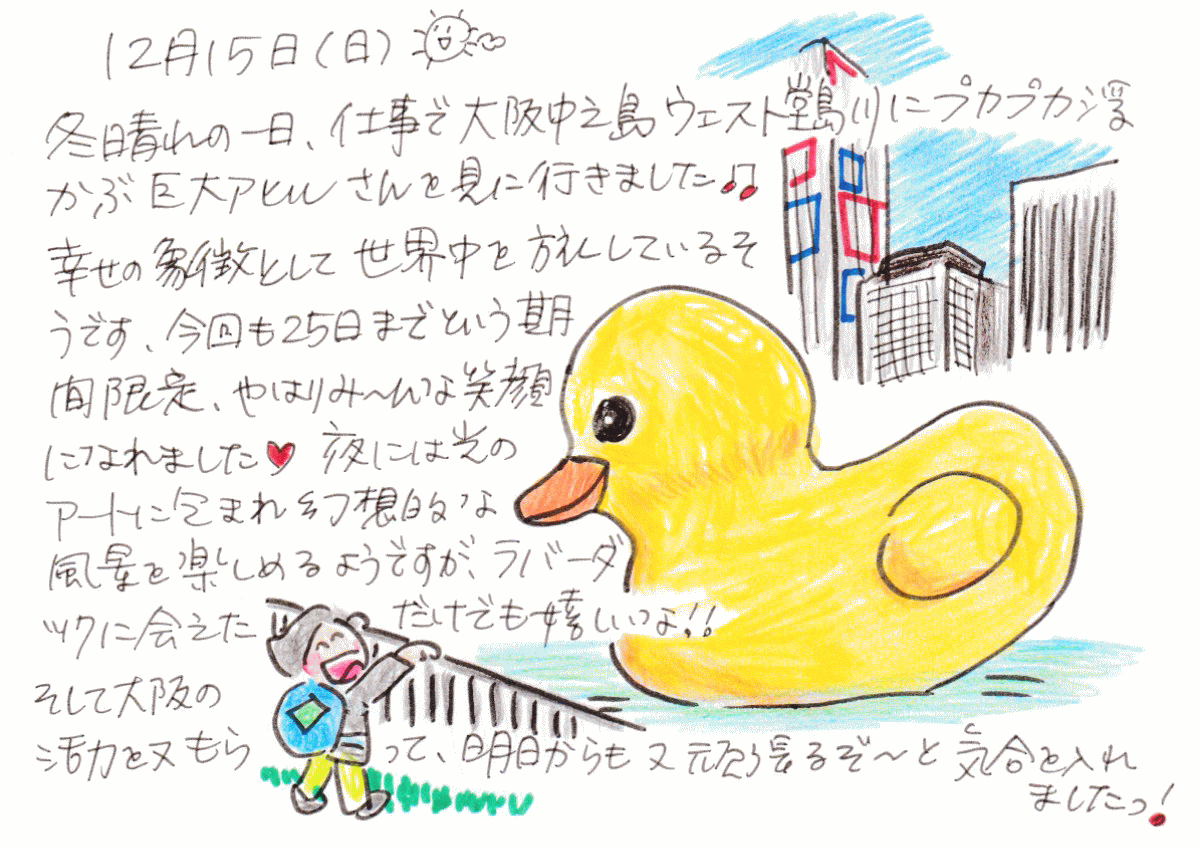 12月15日(日)
冬晴れの一日、仕事で大阪中之島ウエスト堂島川にプカプカ浮
かぶ巨大アヒルさんを見に行きました♫
幸せの象徴として世界中を旅しているそ
うです、今回も25日までという期
間限定、やはりみ〜んな笑顔
になれました♥ 夜には光の
アートに包まれ幻想的な
風景を楽しめるようですが、ラバーダ
ックに会えただけでも嬉しいな!!
そして大阪の
活力を又もらって、明日からも又頑張るぞ〜と気合を入れ
ましたっ!